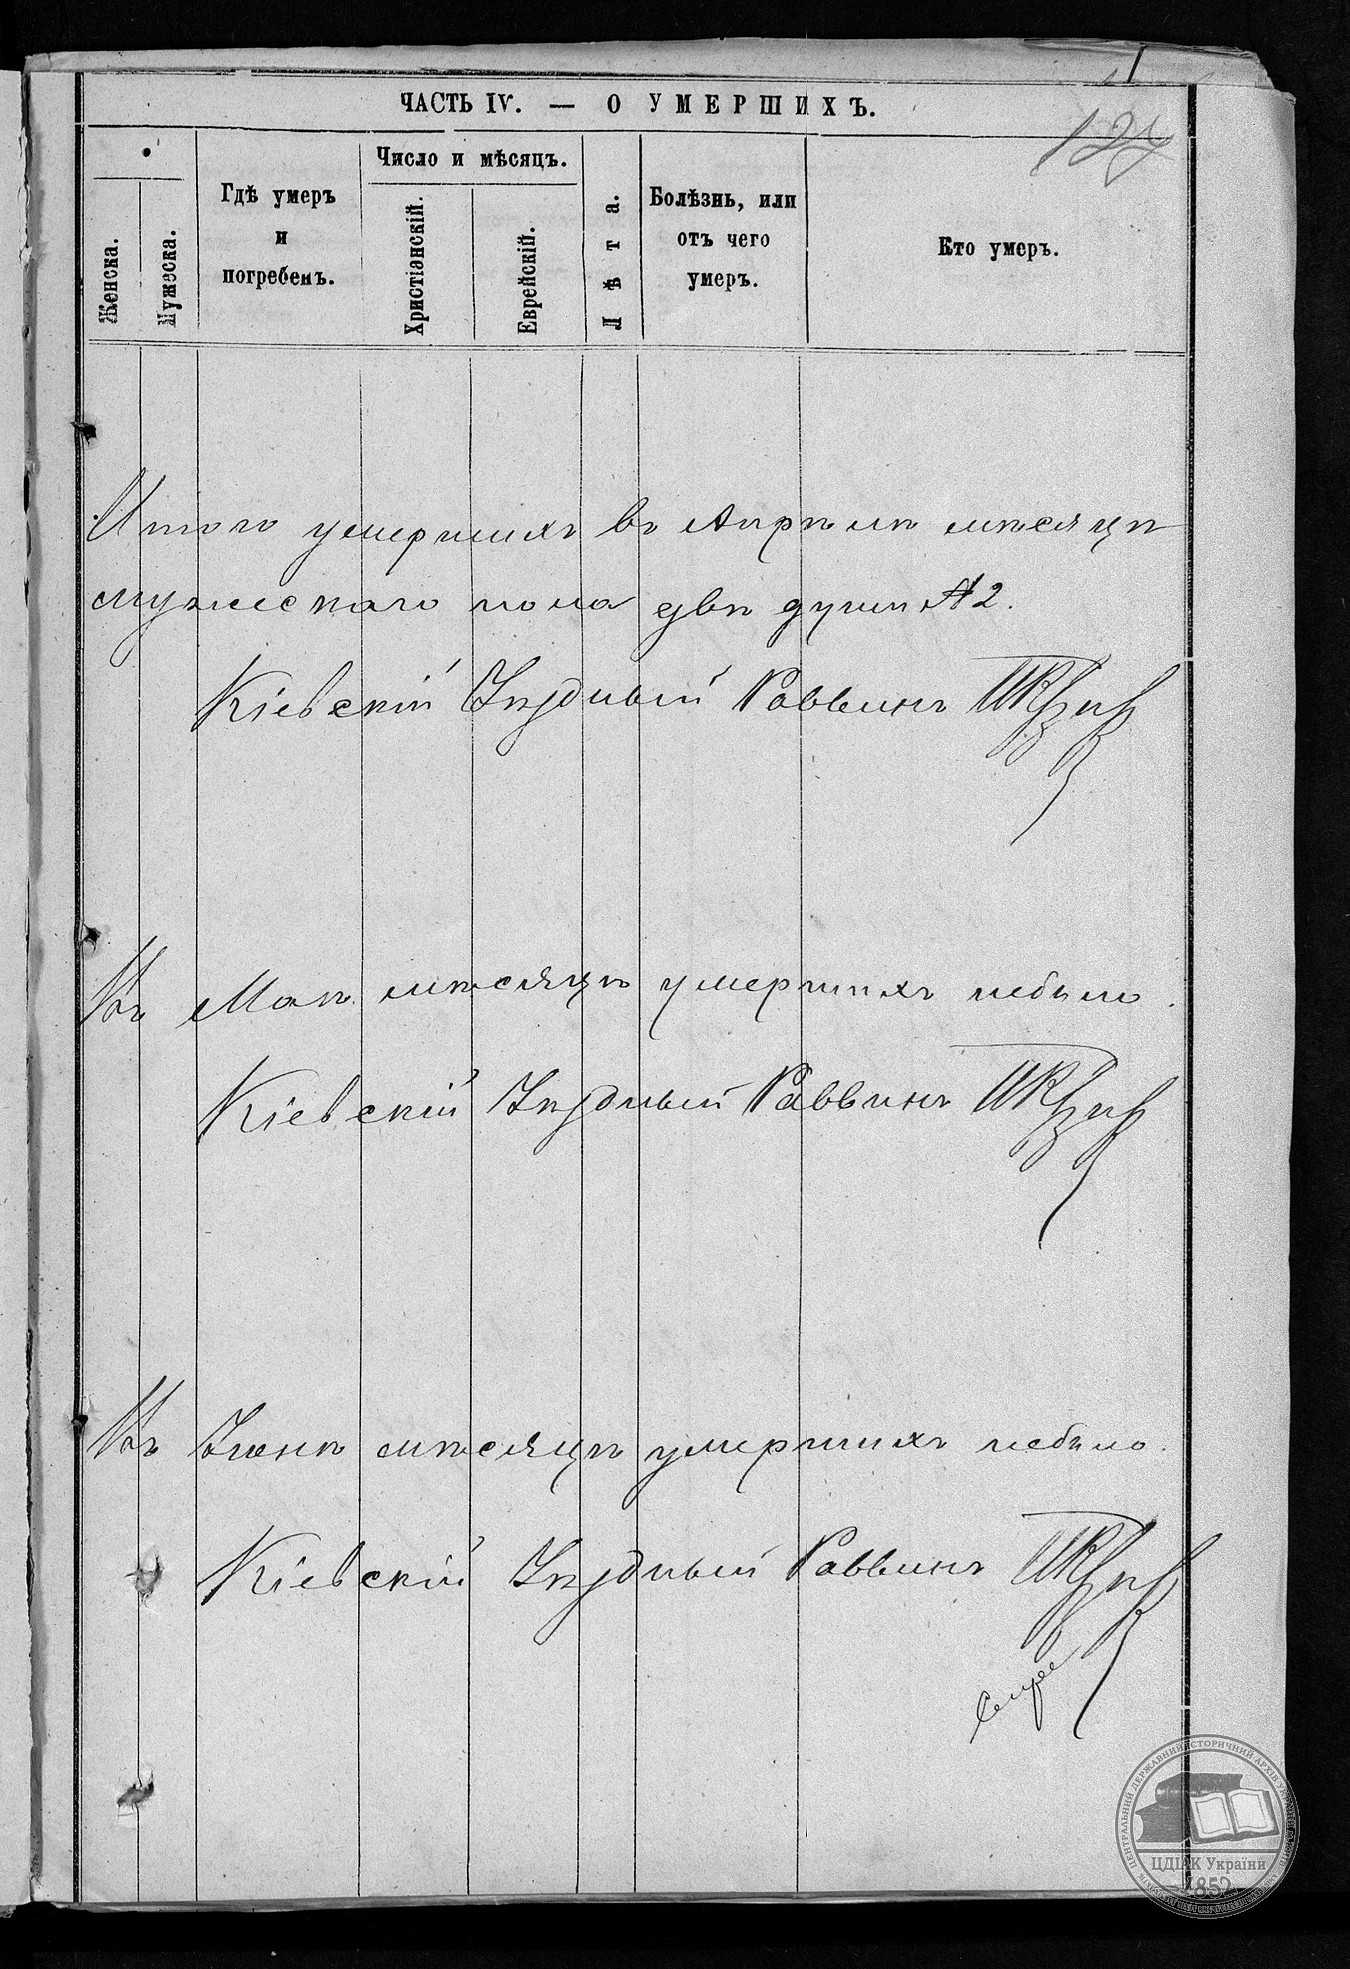 ЧАСТЬ IV. — О УМЕРШИХЪ.
Женска.
Мужеска.
Гдѣ умеръ
и
погребенъ.
Число и мѣсяцъ.
Христіанскій.
Еврейскій.
Лѣта.
Болѣзнь, или
отъ чего
умеръ.
Кто умеръ.
Итого умершихъ въ Апрѣлѣ мѣсяцѣ
мужескаго пола двѣ души № 2.
Кіевскій Уѣздный Раввинъ
Въ Маѣ мѣсяцѣ умершихъ небыло.
Кіевскій Уѣздный Раввинъ
Въ Іюнѣ мѣсяцѣ умершихъ небыло.
Кіевскій Уѣздный Раввинъ
ЦЕНТРАЛЬНИЙ ДЕРЖАВНИЙ ІСТОРИЧНИЙ АРХІВ УКРАЇНИ
ЦДІАК України
1852